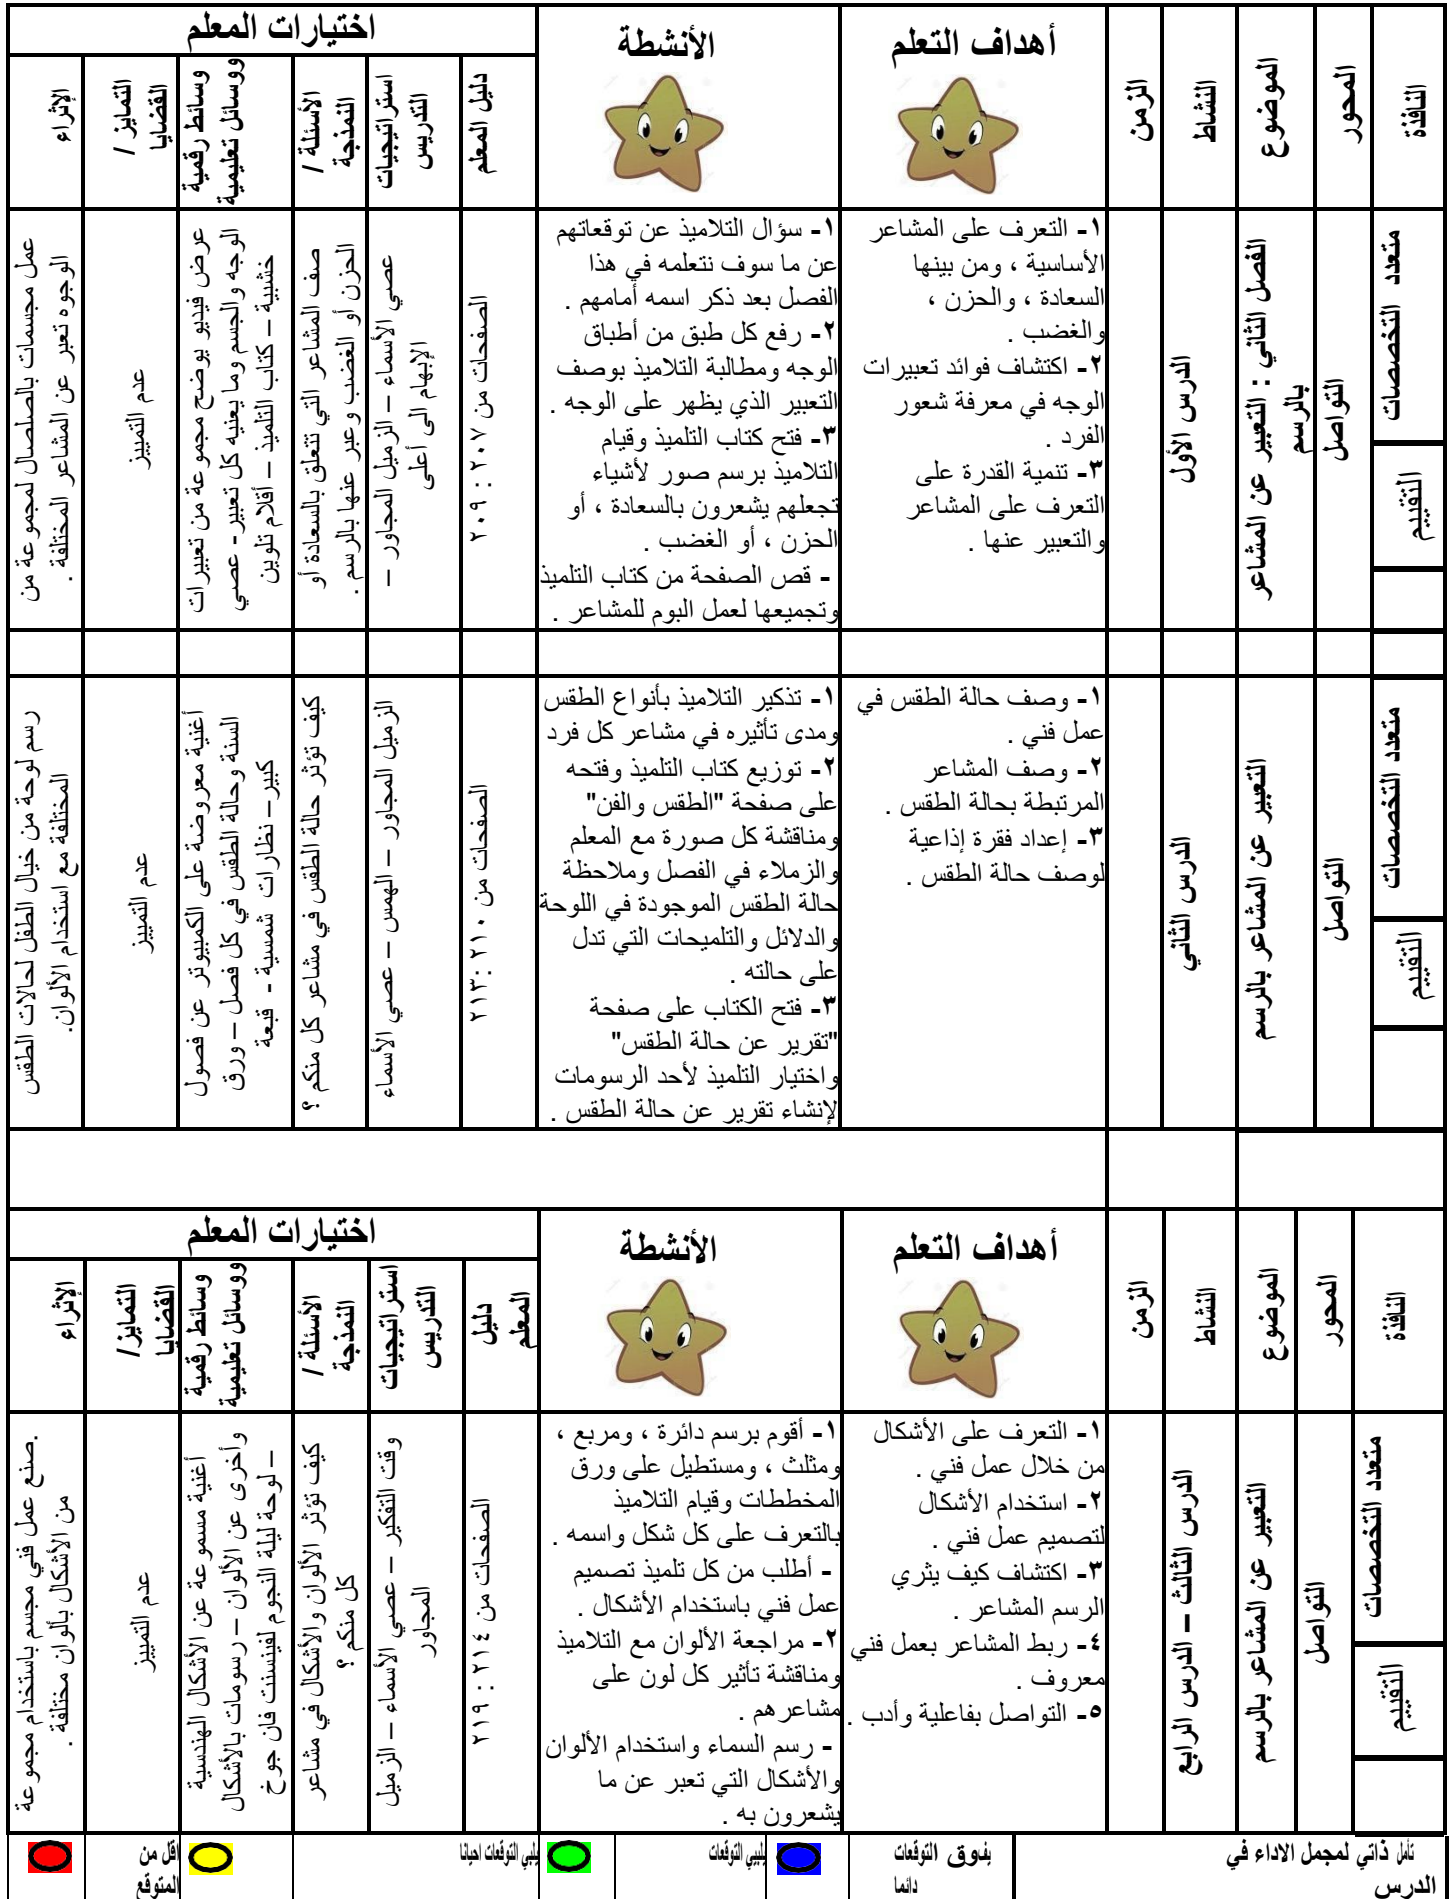 النافذة
المحور
الموضوع
النشاط
الزمن
أهداف التعلم
الأنشطة
اختيارات المعلم
دليل المعلم
استراتيجيات
التدريس
الأسئلة /
النمذجة
وسائط رقمية
ووسائل تعليمية
التمايز /
القضايا
الإثراء
متعدد التخصصات
التقييم
التواصل
الفصل الثاني : التعبير عن المشاعر
بالرسم
الدرس الأول
١- التعرف على المشاعر
الأساسية ، ومن بينها
السعادة ، والحزن ،
والغضب .
٢- اكتشاف فوائد تعبيرات
الوجه في معرفة شعور
الفرد .
٣- تنمية القدرة على
التعرف على المشاعر
والتعبير عنها .
١- سؤال التلاميذ عن توقعاتهم
عن ما سوف نتعلمه في هذا
الفصل بعد ذكر اسمه أمامهم .
٢- رفع كل طبق من أطباق
الوجه ومطالبة التلاميذ بوصف
التعبير الذي يظهر على الوجه .
٣- فتح كتاب التلميذ وقيام
التلاميذ برسم صور لأشياء
تجعلهم يشعرون بالسعادة ، أو
الحزن ، أو الغضب .
- قص الصفحة من كتاب التلميذ
وتجميعها لعمل البوم للمشاعر .
الصفحات من ٢٠٧ : ٢٠٩
عصي الأسماء – الزميل المجاور –
الإبهام الى أعلى
صف المشاعر التي تتعلق بالسعادة أو
الحزن أو الغضب وعبر عنها بالرسم .
عرض فيديو يوضح مجموعة من تعبيرات
الوجه والجسم وما يعنيه كل تعبير- عصي
خشبية – كتاب التلميذ – أقلام تلوين
عدم التمييز
عمل مجسمات بالصلصال لمجموعة من
الوجوه تعبر عن المشاعر المختلفة .
متعدد التخصصات
التقييم
التواصل
التعبير عن المشاعر بالرسم
الدرس الثاني
١- وصف حالة الطقس في
عمل فني .
٢- وصف المشاعر
المرتبطة بحالة الطقس .
٣- إعداد فقرة إذاعية
لوصف حالة الطقس .
١- تذكير التلاميذ بأنواع الطقس
ومدى تأثيره في مشاعر كل فرد
٢- توزيع كتاب التلميذ وفتحه
على صفحة "الطقس والفن"
ومناقشة كل صورة مع المعلم
والزملاء في الفصل وملاحظة
حالة الطقس الموجودة في اللوحة
والدلائل والتلميحات التي تدل
على حالته .
٣- فتح الكتاب على صفحة
"تقرير عن حالة الطقس"
واختيار التلميذ لأحد الرسومات
لإنشاء تقرير عن حالة الطقس .
الصفحات من ٢١٠ :٢١٣
الزميل المجاور – الهمس – عصي الأسماء
كيف تؤثر حالة الطقس في مشاعر كل منكم ؟
أغنية معروضة على الكمبيوتر عن فصول
السنة وحالة الطقس في كل فصل – ورق
كبير– نظارات شمسية - قبعة
عدم التمييز
رسم لوحة من خيال الطفل لحالات الطقس
المختلفة مع استخدام الألوان.
النافذة
المحور
الموضوع
النشاط
الزمن
أهداف التعلم
الأنشطة
اختيارات المعلم
دليل
المعلم
استراتيجيات
التدريس
الأسئلة /
النمذجة
وسائط رقمية
ووسائل تعليمية
التمايز/
القضايا
الإثراء
متعدد التخصصات
التقييم
التواصل
التعبير عن المشاعر بالرسم
الدرس الثالث – الدرس الرابع
١- التعرف على الأشكال
من خلال عمل فني .
٢- استخدام الأشكال
لتصميم عمل فني .
٣- اكتشاف كيف يثري
الرسم المشاعر .
٤- ربط المشاعر بعمل فني
معروف .
٥- التواصل بفاعلية وأدب .
١- أقوم برسم دائرة ، ومربع ،
ومثلث ، ومستطيل على ورق
المخططات وقيام التلاميذ
بالتعرف على كل شكل واسمه .
- أطلب من كل تلميذ تصميم
عمل فني باستخدام الأشكال .
٢- مراجعة الألوان مع التلاميذ
ومناقشة تأثير كل لون على
مشاعرهم .
- رسم السماء واستخدام الألوان
والأشكال التي تعبر عن ما
يشعرون به .
الصفحات من ٢١٤ : ٢١٩
وقت التفكير – عصي الأسماء – الزميل
المجاور
كيف تؤثر الألوان والأشكال في مشاعر
كل منكم ؟
أغنية مسموعة عن الأشكال الهندسية
وأخرى عن الألوان – رسومات بالأشكال
– لوحة ليلة النجوم لفينسنت فان جوخ
عدم التمييز
.صنع عمل فني مجسم باستخدام مجموعة
من الأشكال بألوان مختلفة .
تأمل ذاتي لمجمل الاداء في
الدرس
يفوق التوقعات
دائما
يلبي التوقعات
يلبي التوقعات احيانا
اقل من
المتوقع